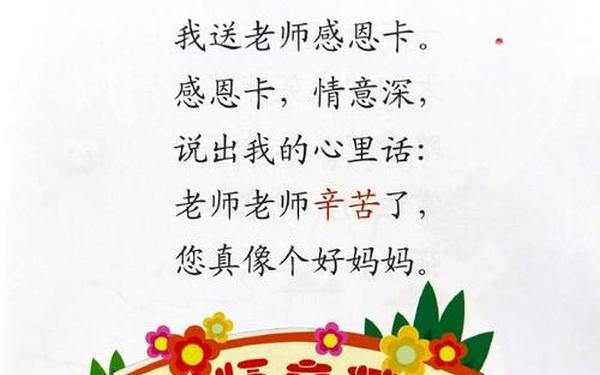 我送老师感恩卡。
感恩卡，情意深，
说出我的心里话：
老师老师辛苦了，
您真像个好妈妈。